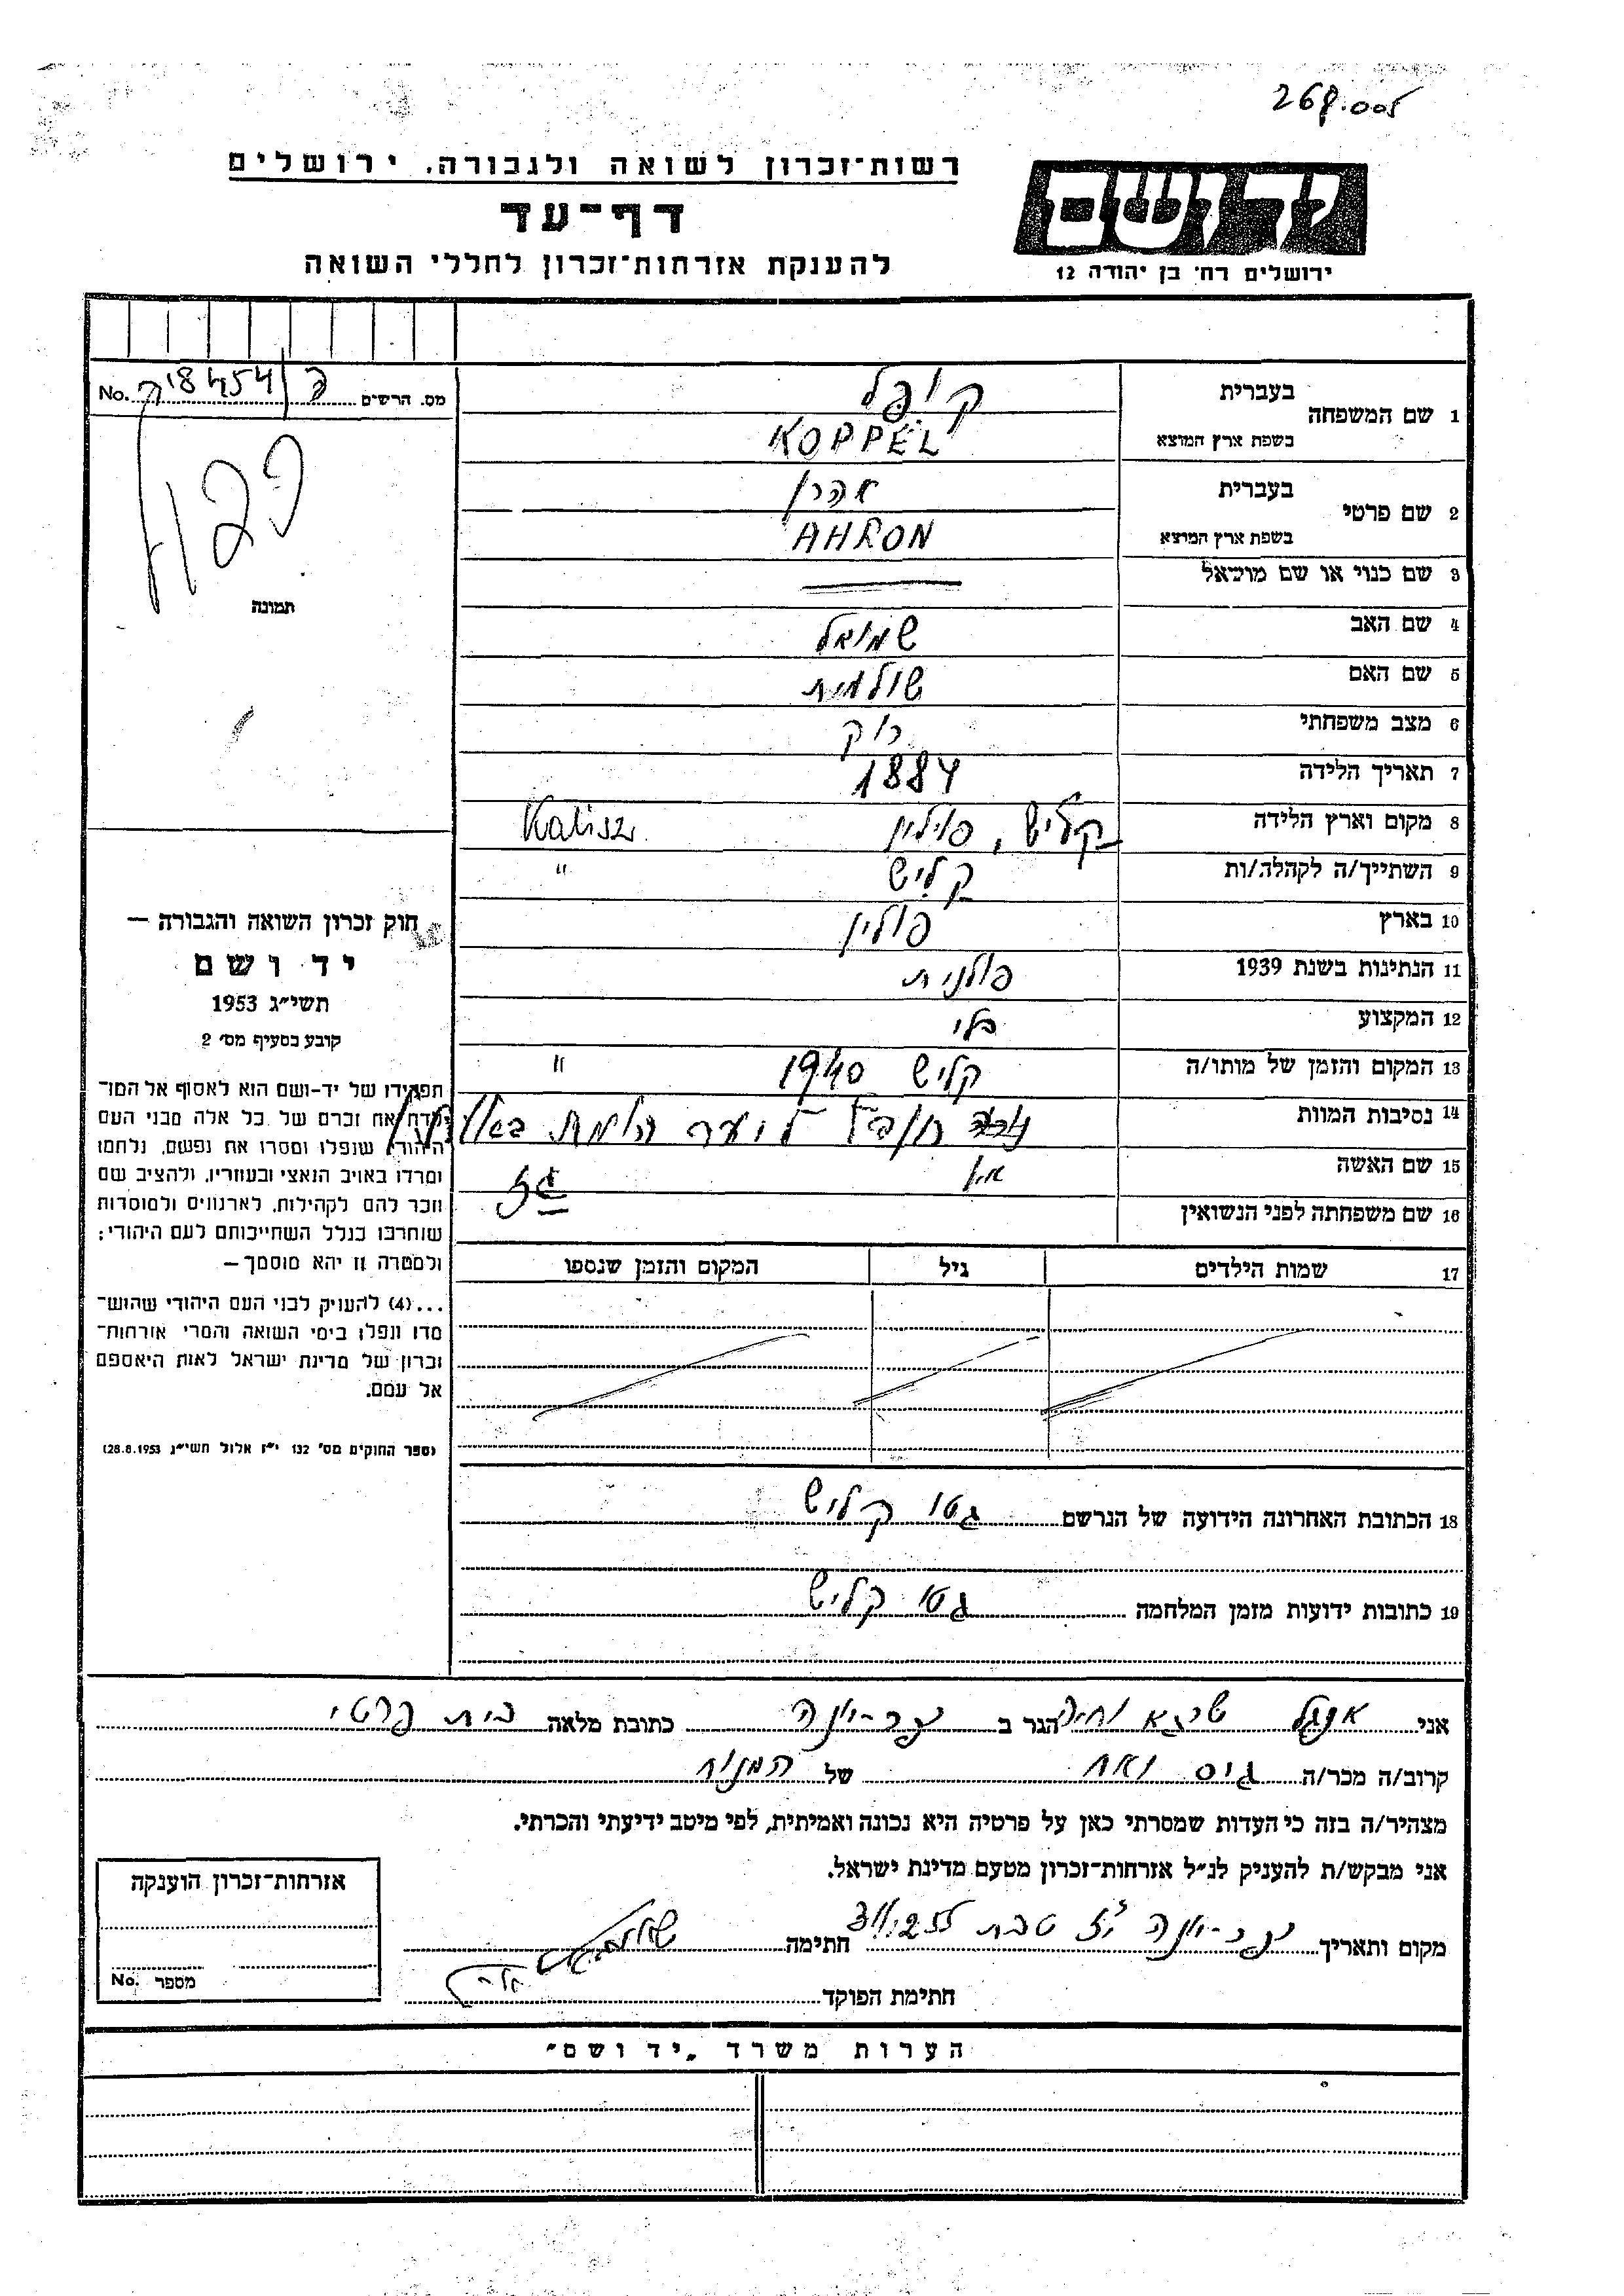 268.005
רשות־זכרון לשואה ולגבורה. ירושלים
דף־עד
להענקת אזרחות־זכרון לחללי השואה
יד ושם
ירושלים רח׳ בן יהודה 12
מס. הרשים 18454 No.
תמונה
1 שם המשפחה בעברית קופל
בשפת ארץ המוצא KOPPEL
2 שם פרטי בעברית אהרן
בשפת ארץ המוצא AHRON
3 שם כנוי או שם מושאל
4 שם האב שמואל
5 שם האם שולמית
6 מצב משפחתי רוק
7 תאריך הלידה 1884
8 מקום וארץ הלידה קליש, פולין Kalisz
9 השתייך/ה לקהלה/ות קליש "
10 בארץ פולין
11 הנתינות בשנת 1939 פולנית
12 המקצוע בלי
13 המקום והזמן של מותו/ה קליש 1940 "
14 נסיבות המוות
15 שם האשה אין
16 שם משפחתה לפני הנשואין
17 שמות הילדים גיל המקום והזמן שנספו
18 הכתובת האחרונה הידועה של הנרשם גטו קליש
19 כתובות ידועות מזמן המלחמה גטו קליש
חוק זכרון השואה והגבורה —
יד ושם
תשי״ג 1953
קובע בסעיף מס׳ 2
תפקידו של יד-ושם הוא לאסוף אל המו־
לדת את זכרם של כל אלה מבני העם
היהודי, שנפלו ומסרו את נפשם, נלחמו
ומרדו באויב הנאצי ובעוזריו, ולהציב שם
וזכר להם לקהילות, לארגונים ולמוסדות
שנחרבו בגלל השתייכותם לעם היהודי;
ולמטרה זו יהא מוסמך —
...(4) להעניק לבני העם היהודי שהוש־
מדו ונפלו בימי השואה והמרי אזרחות־
זכרון של מדינת ישראל לאות היאספם
אל עמם.
(ספר החוקים מס׳ 132 י״ז אלול תשי״ג 28.8.1953)
אני אנגל הגר ב כתובת מלאה בית פרטי
קרוב/ה מכר/ה גיס של המנוח
מצהיר/ה בזה כי העדות שמסרתי כאן על פרטיה היא נכונה ואמיתית, לפי מיטב ידיעתי והכרתי.
אני מבקש/ת להעניק לנ״ל אזרחות־זכרון מטעם מדינת ישראל.
מקום ותאריך טבת חתימה
חתימת הפוקד
אזרחות־זכרון הוענקה
מספר No.
הערות משרד „יד ושם״